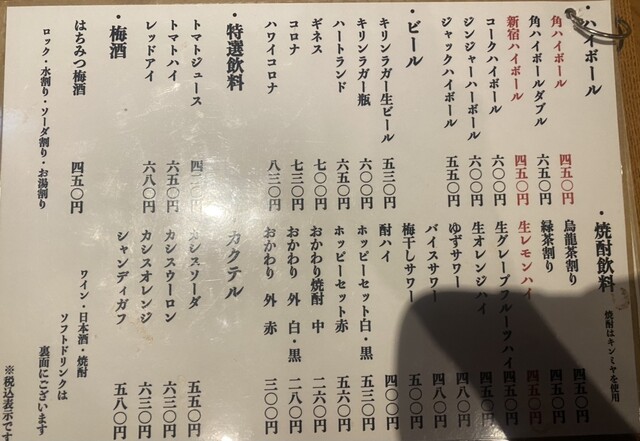 ・ハイボール
角ハイボール 四五〇円
角ハイボールダブル 六五〇円
新宿ハイボール 四五〇円
コークハイボール 六〇〇円
ジンジャーハーボール 六〇〇円
ジャックハイボール 五五〇円
・ビール
キリンラガー生ビール 五三〇円
キリンラガー瓶 六〇〇円
ハートランド 六五〇円
ギネス 七〇〇円
コロナ 七三〇円
ハワイコロナ 八三〇円
・特選飲料
トマトジュース
トマトハイ 六五〇円
レッドアイ 六八〇円
・梅酒
はちみつ梅酒 四五〇円
ロック・水割り・ソーダ割り・お湯割り
・焼酎飲料 焼酎はキンミヤを使用
烏龍茶割り 四五〇円
緑茶割り 四五〇円
生レモンハイ 五五〇円
生グレープフルーツハイ 五五〇円
生オレンジハイ 五五〇円
ゆずサワー 四八〇円
バイスサワー 四八〇円
梅干しサワー
酎ハイ 四〇〇円
ホッピーセット白・黒 五三〇円
ホッピーセット赤 五六〇円
おかわり焼酎 中 二六〇円
おかわり 外 白・黒 二八〇円
おかわり 外 赤 三〇〇円
・カクテル
カシスソーダ 五五〇円
カシスウーロン 六三〇円
カシスオレンジ 六三〇円
シャンディガフ 五八〇円
ワイン・日本酒・焼酎
ソフトドリンクは
裏面にございます
※税込表示です